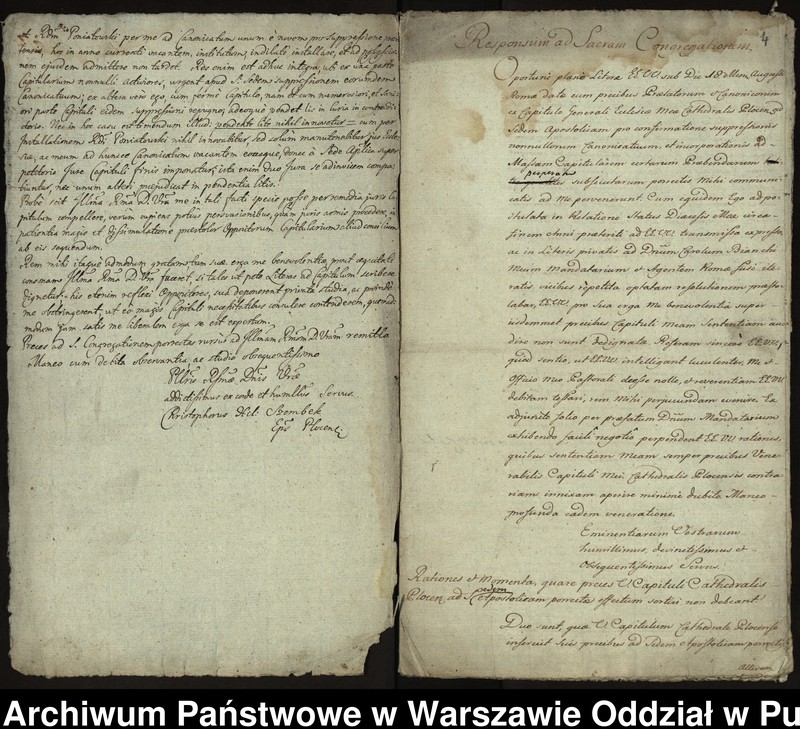 et Rdmo Poniatowski per me ad Canonicatum unum è novem pro suppressione
tensis, hoc in anno currenti vacantem, institutum, indilatè installare, et ad
nem ejusdem admittere non tardet. Res enim est adhuc integra, ubi ex una parte
Capitularium nonnulli Actores, urgent apud S. Sedem suppressionem eorundem
Canonicatuum; ex altera vero ego, cum firmi Capitulo, nam et cum numerosiori, et
ori parte Capituli eidem suppressioni repugno; adeoque pendet lis in Curia in contradi
ctorio. Nec in hoc casu extimendum illud: pendente lite nihil innovetur = cum per
Installationem Rdi Poniatowski nihil innovabitur, sed solum manutenebitur jus
sia, ac meum ad huncce Canonicatum vacantem eousque, donec à Sede Aplica super
petitoris Jure Capituli finis imponatur; ista enim duo Jura se adinvicem compa
tiuntur, nec unum alteri præjudicat in pendentia litis.
Probè scit Illma, Rma D. Vra me in tali facti specie posse per remedia juris Ca
pitulum compellere, verum cupiens potius persuasionibus, quam juris armis procedere, in
patientia magis et dissimulatione præstolor Oppositorum Capitularium aliud consilium
ab eis sequendum.
Rem mihi itaque admodum gratam tum suæ, erga me benevolentiæ, prout æquitati
consonam Illma Rma D. Vra faceret, si tales ut peto Literas ad Capitulum scribere
dignetur: his etenim reflexi Oppositores, sua deponerent privata studia, ac
me obstringerent, ut eo magis Capituli necessitatibus consulere contenderem,
modum jam satis me libentem erga se est expertum.
Preces ad S. Congregationem porrectas rursus ad Illmam, Rmam D. Vram remitto
Maneo cum debita observantia ac studio obsequentissimo
Illmæ Rmæ Dnis Vræ
addictissimus ex corde et humillus Servus
Christophorus Hil. Szembek
Epus Plocens.
4
Responsum ad Sacram Congregationem.
Opportunè planè Literæ EE.VV. sub Die 18 Mens. Augusti
Roma datæ cum precibus Prælatorum et Canonicorum
ex Capitulo Generali Ecclesiæ Meæ Cathedralis Plocen. ad
Sedem Apostolicam pro confirmatione suppressionis
nonnullorum Canonicatuum, et incorporationis ad
Massam Capitularem certarum Præbendarum
perperam
subsecutarum porrectis Mihi communi
catis ad Me pervenerunt. Cum equidem Ego ad po
stulata in Relatione Status Diæcesis Meæ circa
finem Anni præteriti ad EE.VV. transmissa expressa,
ac in Literis privatis ad Dnum Carolum Bianchi
Meum Mandatarium et Agentem Romæ fusè ite
ratis vicibus repetita optatam resolutionem præsto
labar, EE.VV. pro Sua erga Me benevolentia super
iisdemmet precibus Capituli Meam Sententiam au
dire non sunt dedignatæ. Pessram sincerè EE.VV.
quod sentio, ut EE.VV. intelligent luculenter, Me et
Officio Meo Pastorali deesse nolle, et reverentiam EE.VV.
debitam testari, rem Mihi perjucundam evenire. Ex
adjuncto folio per præfatum Dnum Mandatarium
exhibendo facili negotio perpendent EE.VV. rationes,
quibus sententiam Meam semper precibus Vene
rabilis Capituli Mei Cathedralis Plocensis contra
riam innixam aperire minimè dubito. Maneo
profunda eadem veneratione.
Eminentiarum Vestrarum
humillimus, devinctissimus et
Obsequentissimus Servus.
Rationes et Momenta, quare preces V. Capituli Cathedralis
Plocen. ad S. Sedem Apostolicam porrectæ effectum sortiri non debeant
Duo sunt, quæ V. Capitulum Cathedrale Plocense
inseruit Suis precibus ad Sedem Apostolicam porrectis
Alterum
Archiwum Państwowe w Warszawie Oddział w Pu